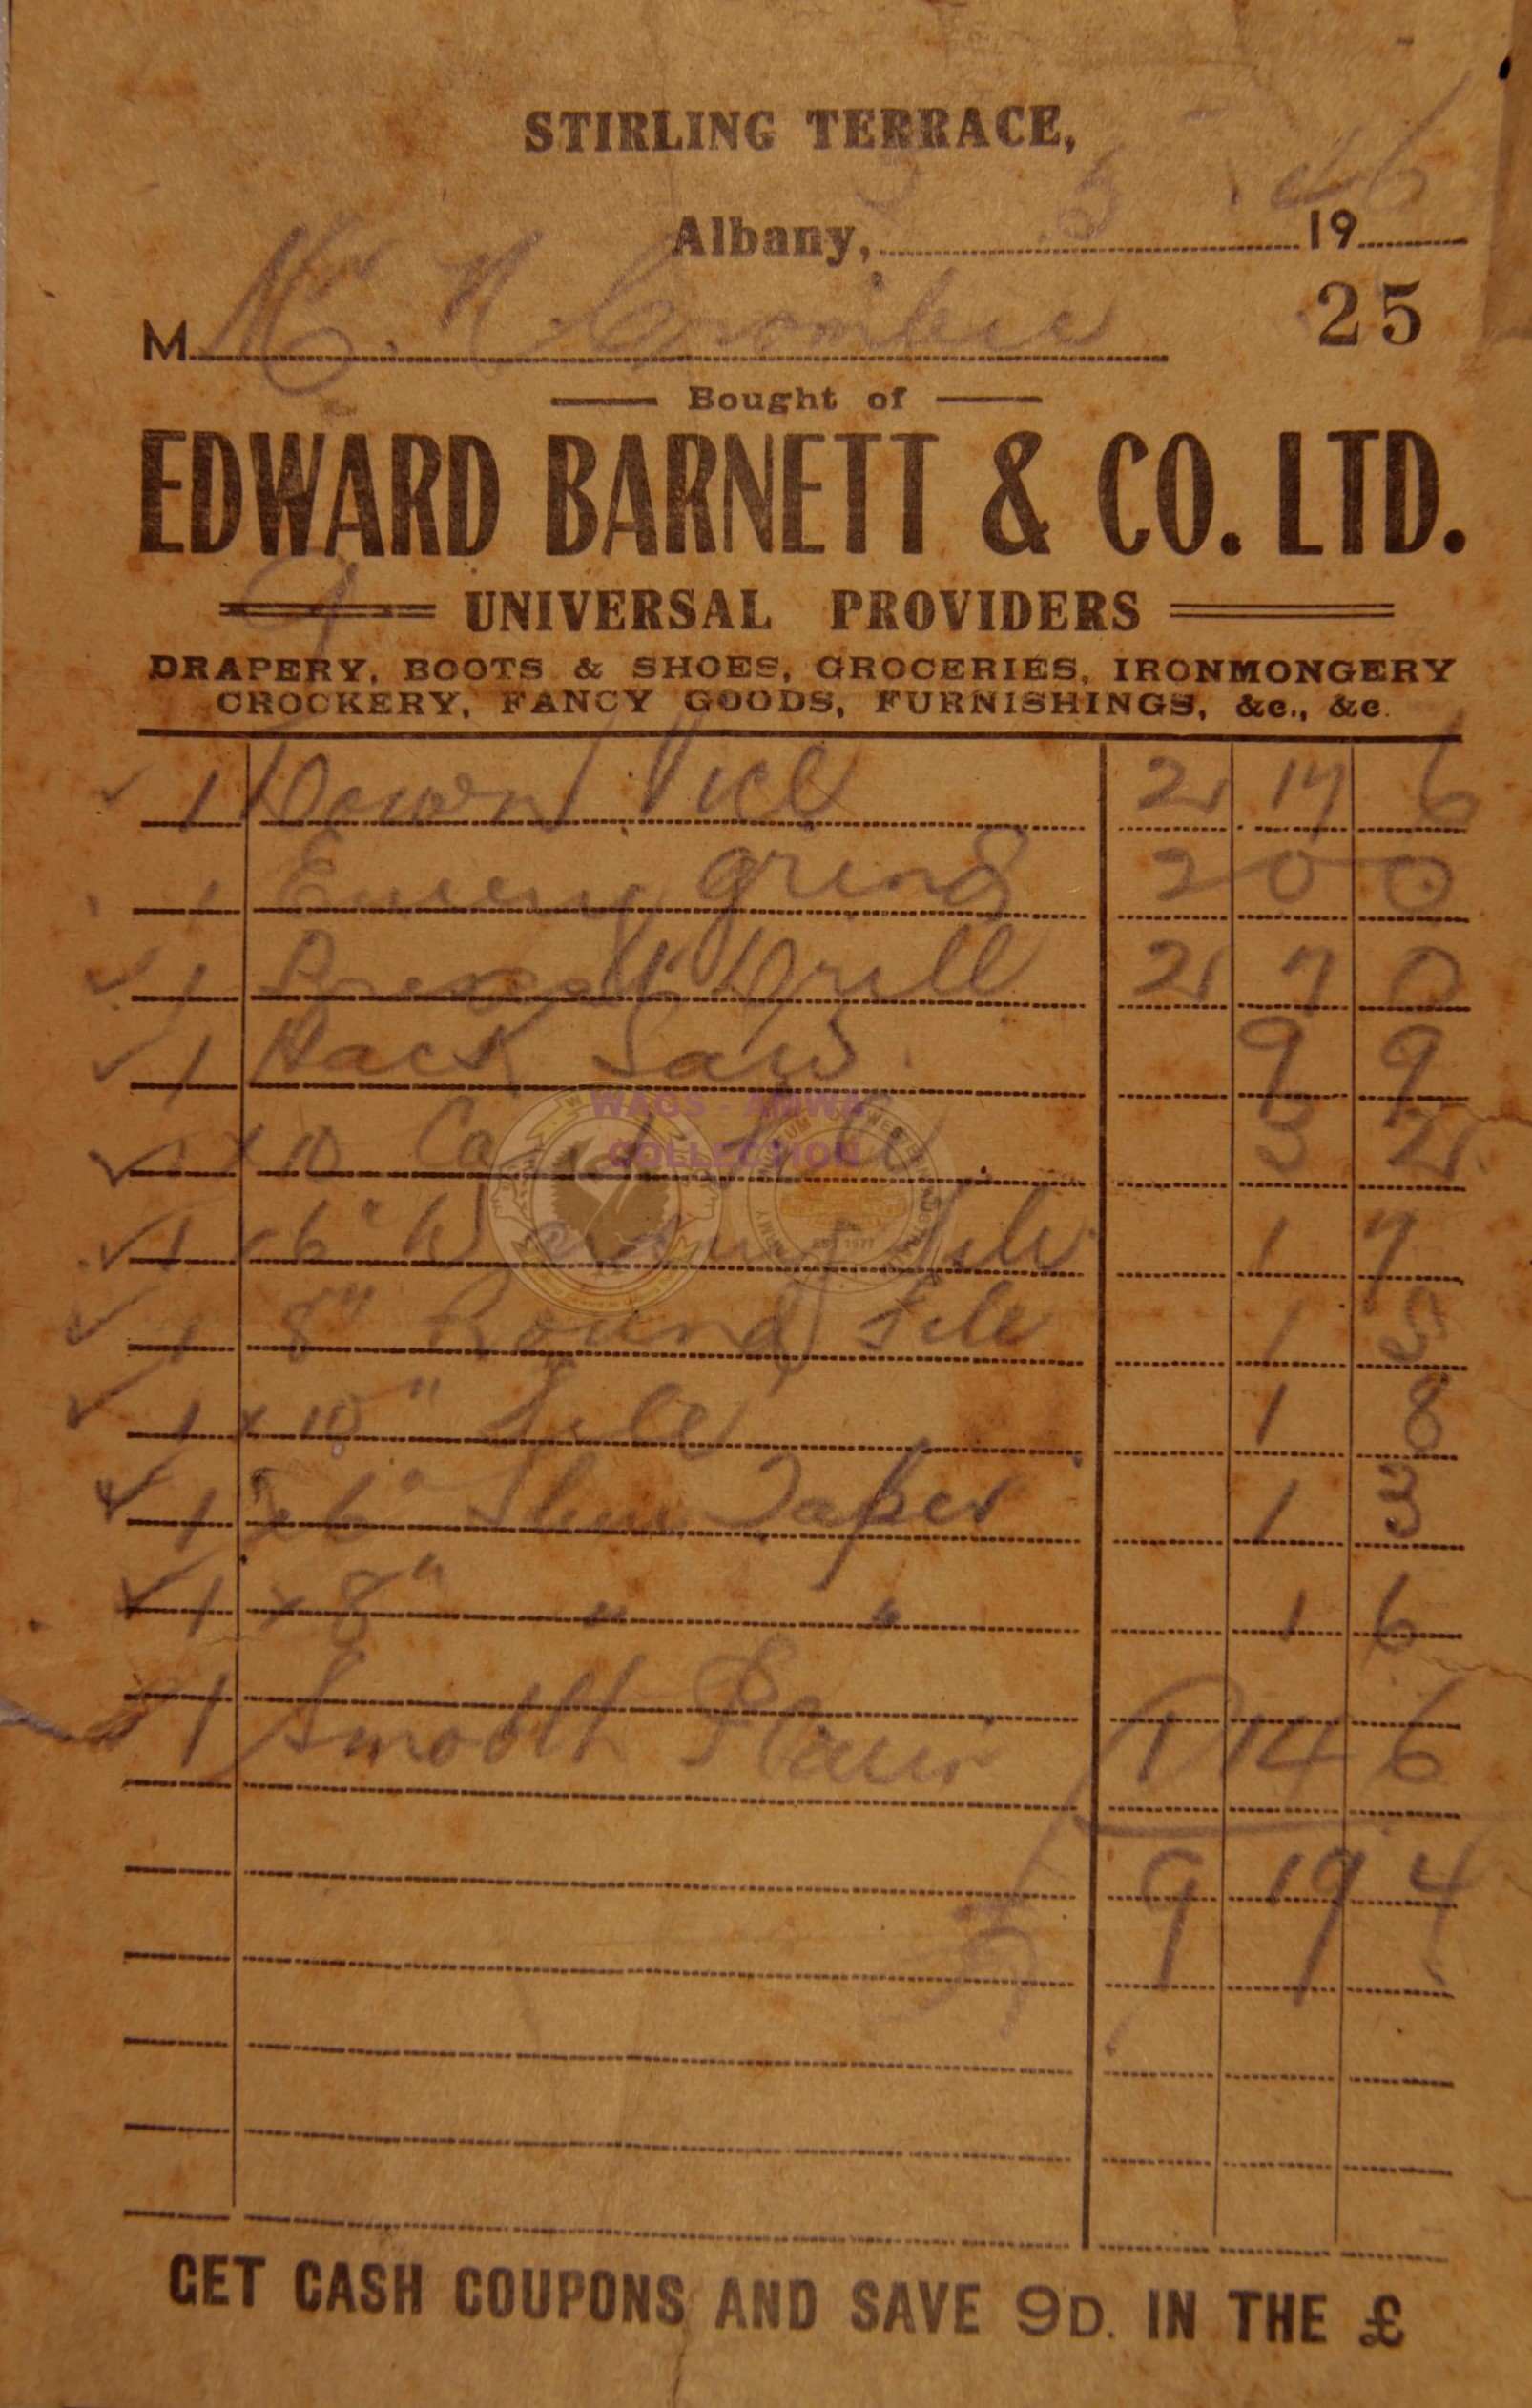 STIRLING TERRACE,
5 5 46
Albany, 19
M r. N. Crombie 25
Bought of
EDWARD BARNETT & CO. LTD.
UNIVERSAL PROVIDERS
DRAPERY, BOOTS & SHOES, GROCERIES, IRONMONGERY
CROCKERY, FANCY GOODS, FURNISHINGS, &c., &c.
1 Dawn Vice 2 17 6
1 Emery grind 2 0 0
1 Breast Drill 2 7 0
1 Hack Saw 9 9
WAGS - AMWA
COLLECTION
1 x 10 3 2
1 x 6" File 1 7
1 8" Round File 1
1 x 10" File 1 8
1 x 6" Slim Taper 1 3
1 x 8" " " 1 6
1 Smooth Plane 1 14 6
9 19 4
GET CASH COUPONS AND SAVE 9D. IN THE £